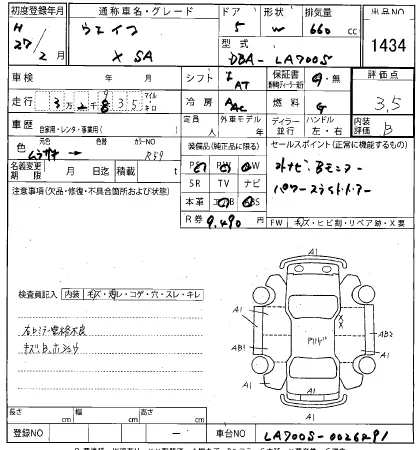 初度登録年月 通称車名・グレード ドア 形状 排気量 出品NO
H 27/2月 ウェイク X SA 5 W 660 cc 1434
型式 DBA-LA700S
車検 年 月 シフト I AT 保証書 有・無 評価点
走行 3万 8 3 5 マイル キロ 冷房 AAC 燃料 G 3.5
車歴 自家用・レンタ・事業用( ) 定員 人 外車モデル 年 ディーラー 並行 ハンドル 左・右 内装評価 B
色 元色 色替 カラーNO R59
装備品(純正品に限る) セールスポイント(正常に機能するもの)
名義変更期限 月 日迄 積載 t
PS PW AW
SR TV ナビ
本革 ABS
外ナビ・Bモニター
パワースライドドアー
注意事項(欠品・修復・不具合箇所および状態)
R券 9,490円
FW キズ・ヒビ割・リペア跡・X要
検査員記入 内装 キズ・汚レ・コゲ・穴・スレ・キレ
右ミラー電格不良
A1
A1 A1
AB1 AB2
A1
A1
A1
長さ cm 幅 cm 高さ cm
登録NO ー 車台NO LA700S-0026291